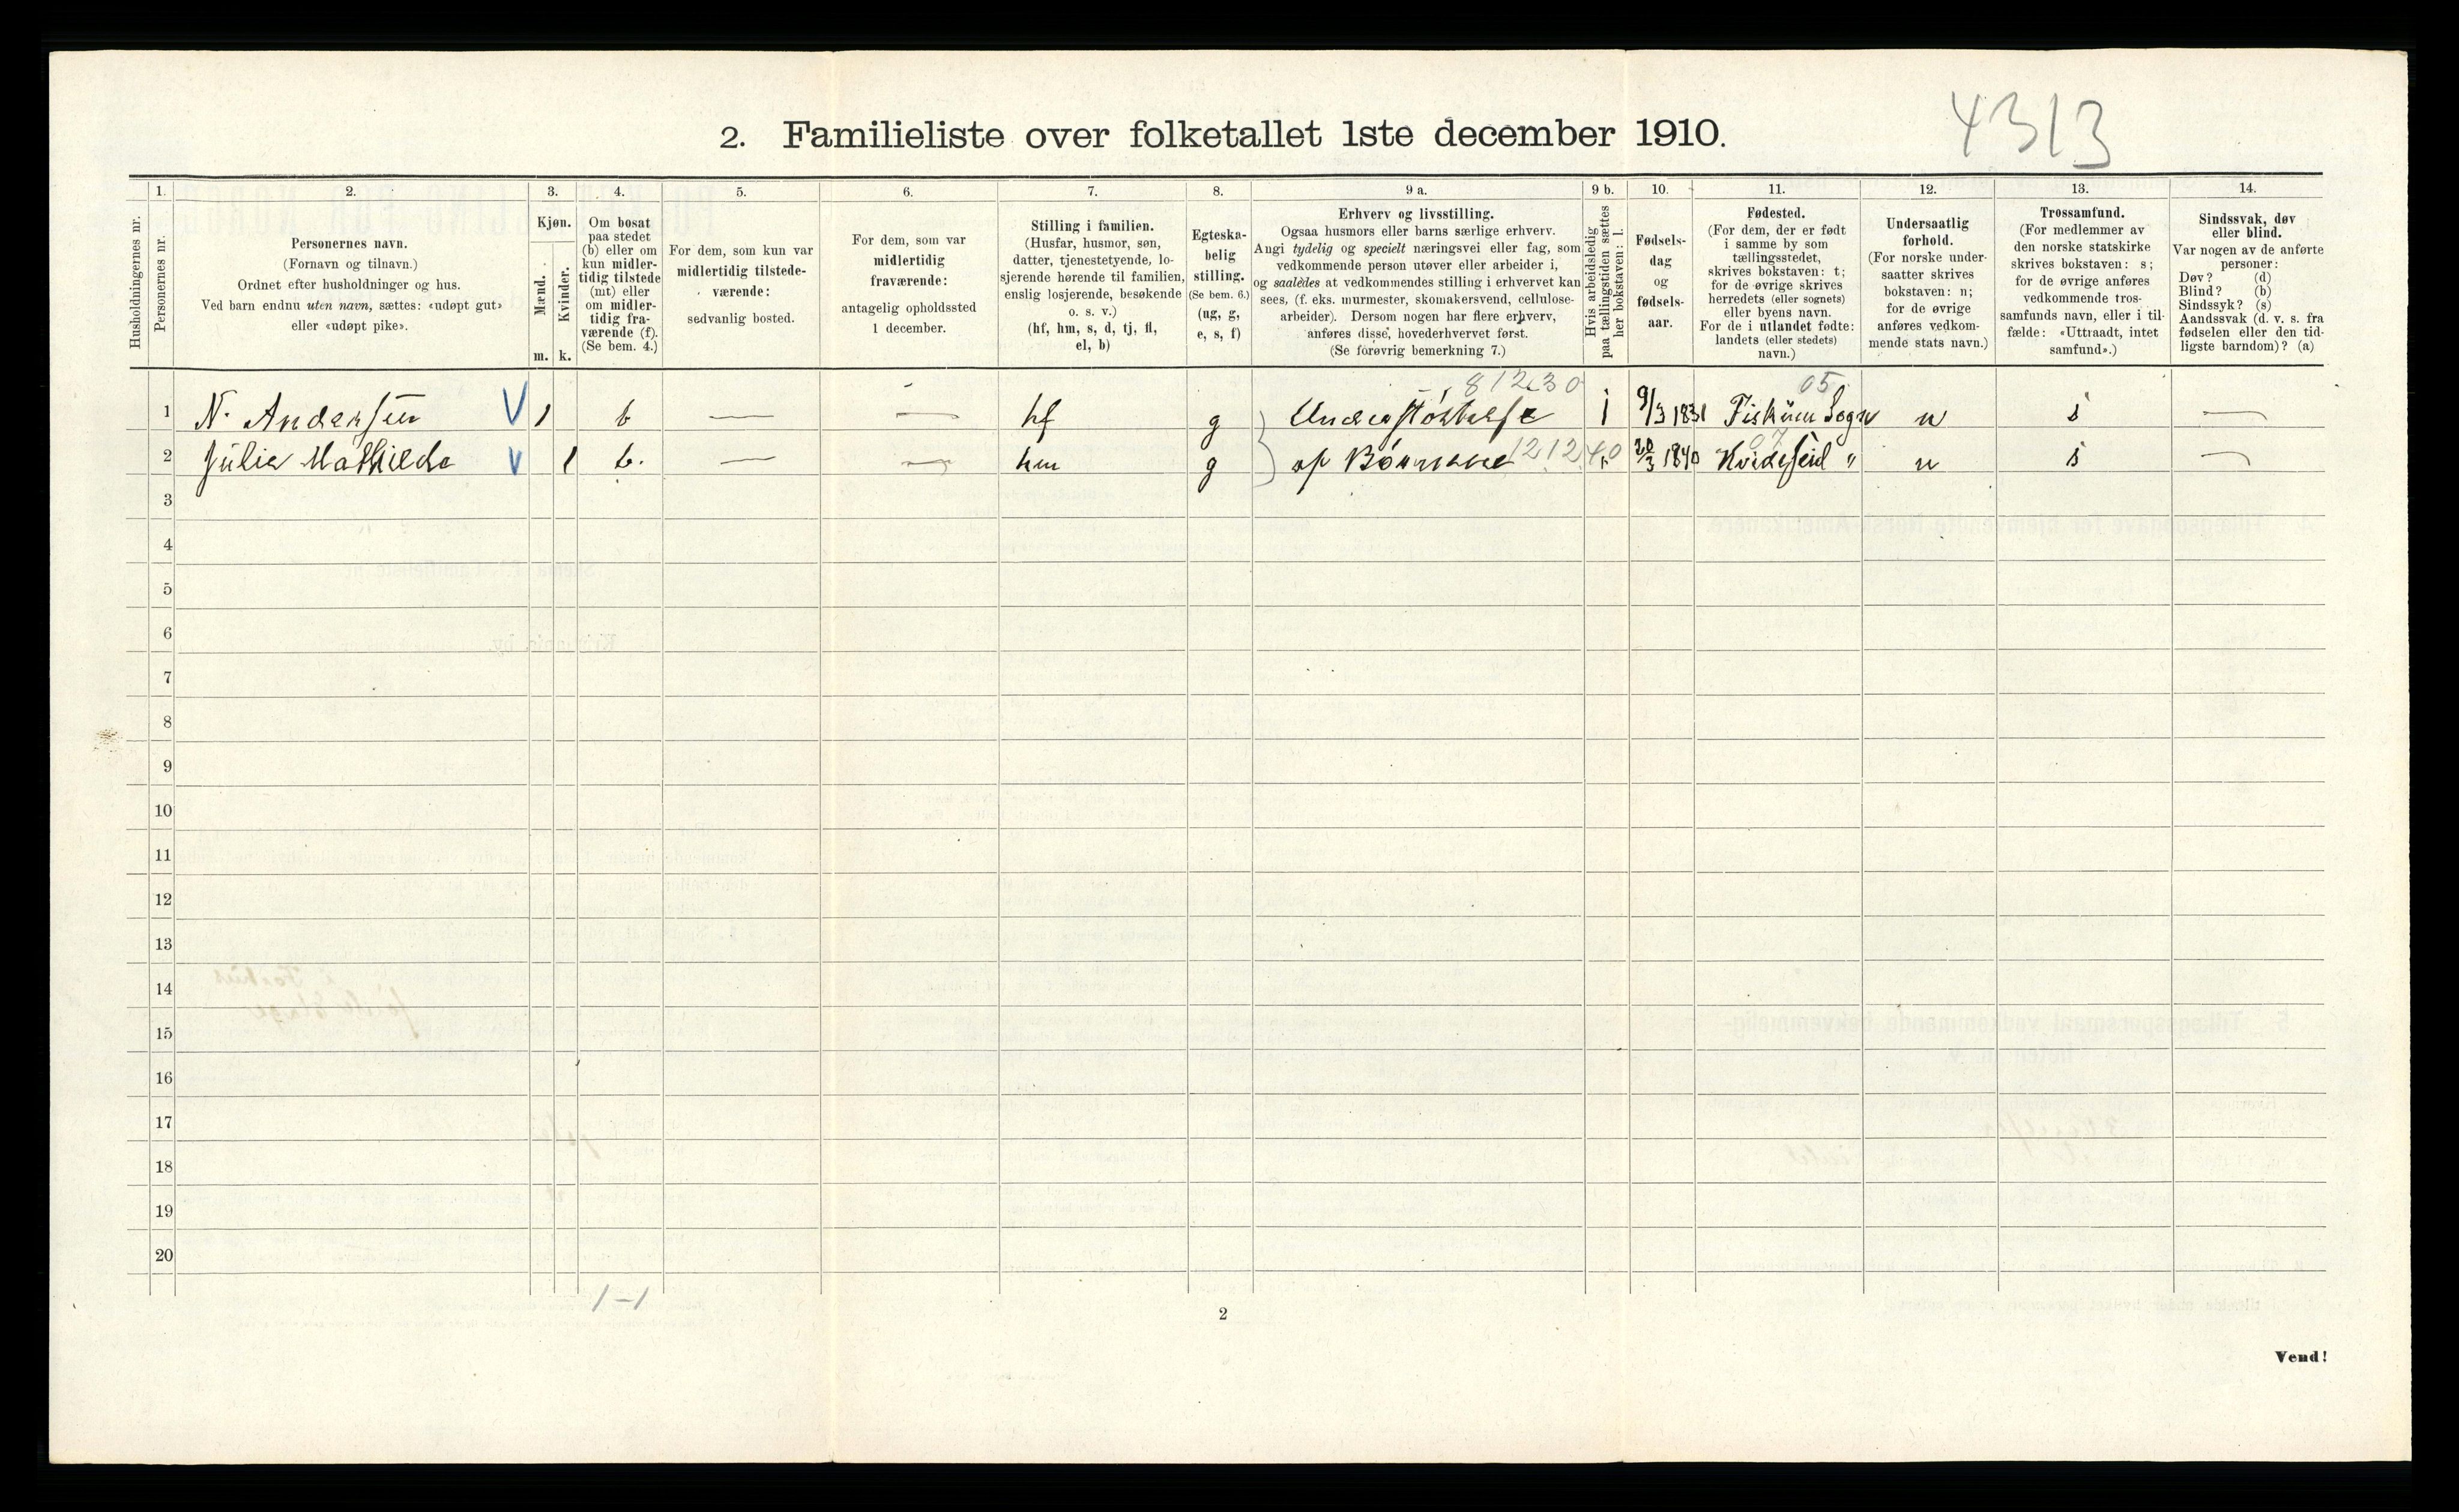 4313
2. Familieliste over folketallet 1ste december 1910.
1. 2. 3. 4. 5. 6. 7. 8. 9 a. 9 b. 10. 11. 12. 13. 14.
Husholdningernes nr.
Personernes nr.
Personernes navn.
(Fornavn og tilnavn.)
Ordnet efter husholdninger og hus.
Ved barn endnu uten navn, sættes: «udøpt gut»
eller «udøpt pike».
Kjøn.
Mænd.
Kvinder.
m. k.
Om bosat
paa stedet
(b) eller om
kun midler-
tidig tilstede
(mt) eller
om midler-
tidig fra-
værende (f).
(Se bem. 4.)
For dem, som kun var
midlertidig tilstede-
værende:
sedvanlig bosted.
For dem, som var
midlertidig
fraværende:
antagelig opholdssted
1 december.
Stilling i familien.
(Husfar, husmor, søn,
datter, tjenestetyende, lo-
sjerende hørende til familien,
enslig losjerende, besøkende
o. s. v.)
(hf, hm, s, d, tj, fl,
el, b)
Egteska-
belig
stilling.
(Se bem. 6.)
(ug, g,
e, s, f)
Erhverv og livsstilling.
Ogsaa husmors eller barns særlige erhverv.
Angi tydelig og specielt næringsvei eller fag, som
vedkommende person utøver eller arbeider i,
og saaledes at vedkommendes stilling i erhvervet kan
sees, (f. eks. murmester, skomakersvend, cellulose-
arbeider). Dersom nogen har flere erhverv,
anføres disse, hovederhvervet først.
(Se forøvrig bemerkning 7.)
Hvis arbeidsledig
paa tællingstiden sættes
her bokstaven: l.
Fødsels-
dag
og
fødsels-
aar.
Fødested.
(For dem, der er født
i samme by som
tællingsstedet,
skrives bokstaven: t;
for de øvrige skrives
herredets (eller sognets)
eller byens navn.
For de i utlandet fødte:
landets (eller stedets)
navn.)
Undersaatlig
forhold.
(For norske under-
saatter skrives
bokstaven: n;
for de øvrige
anføres vedkom-
mende stats navn.)
Trossamfund.
(For medlemmer av
den norske statskirke
skrives bokstaven: s;
for de øvrige anføres
vedkommende tros-
samfunds navn, eller i til-
fælde: «Uttraadt, intet
samfund».)
Sindssvak, døv
eller blind.
Var nogen av de anførte
personer:
Døv? (d)
Blind? (b)
Sindssyk? (s)
Aandssvak (d. v. s. fra
fødselen eller den tid-
ligste barndom)? (a)
81230 05
1 N. Andersen V 1 b — — hf g Understøttelse 9/3 1831 Fiskum Sogn n s —
07
2 Julie Mathilde V 1 b. — — hm g af Børnene 121240 20/3 1840 Kvideseid " n s —
3
4
5
6
7
8
9
10
11
12
13
14
15
16
17
18
19
20
1-1
2
Vend!